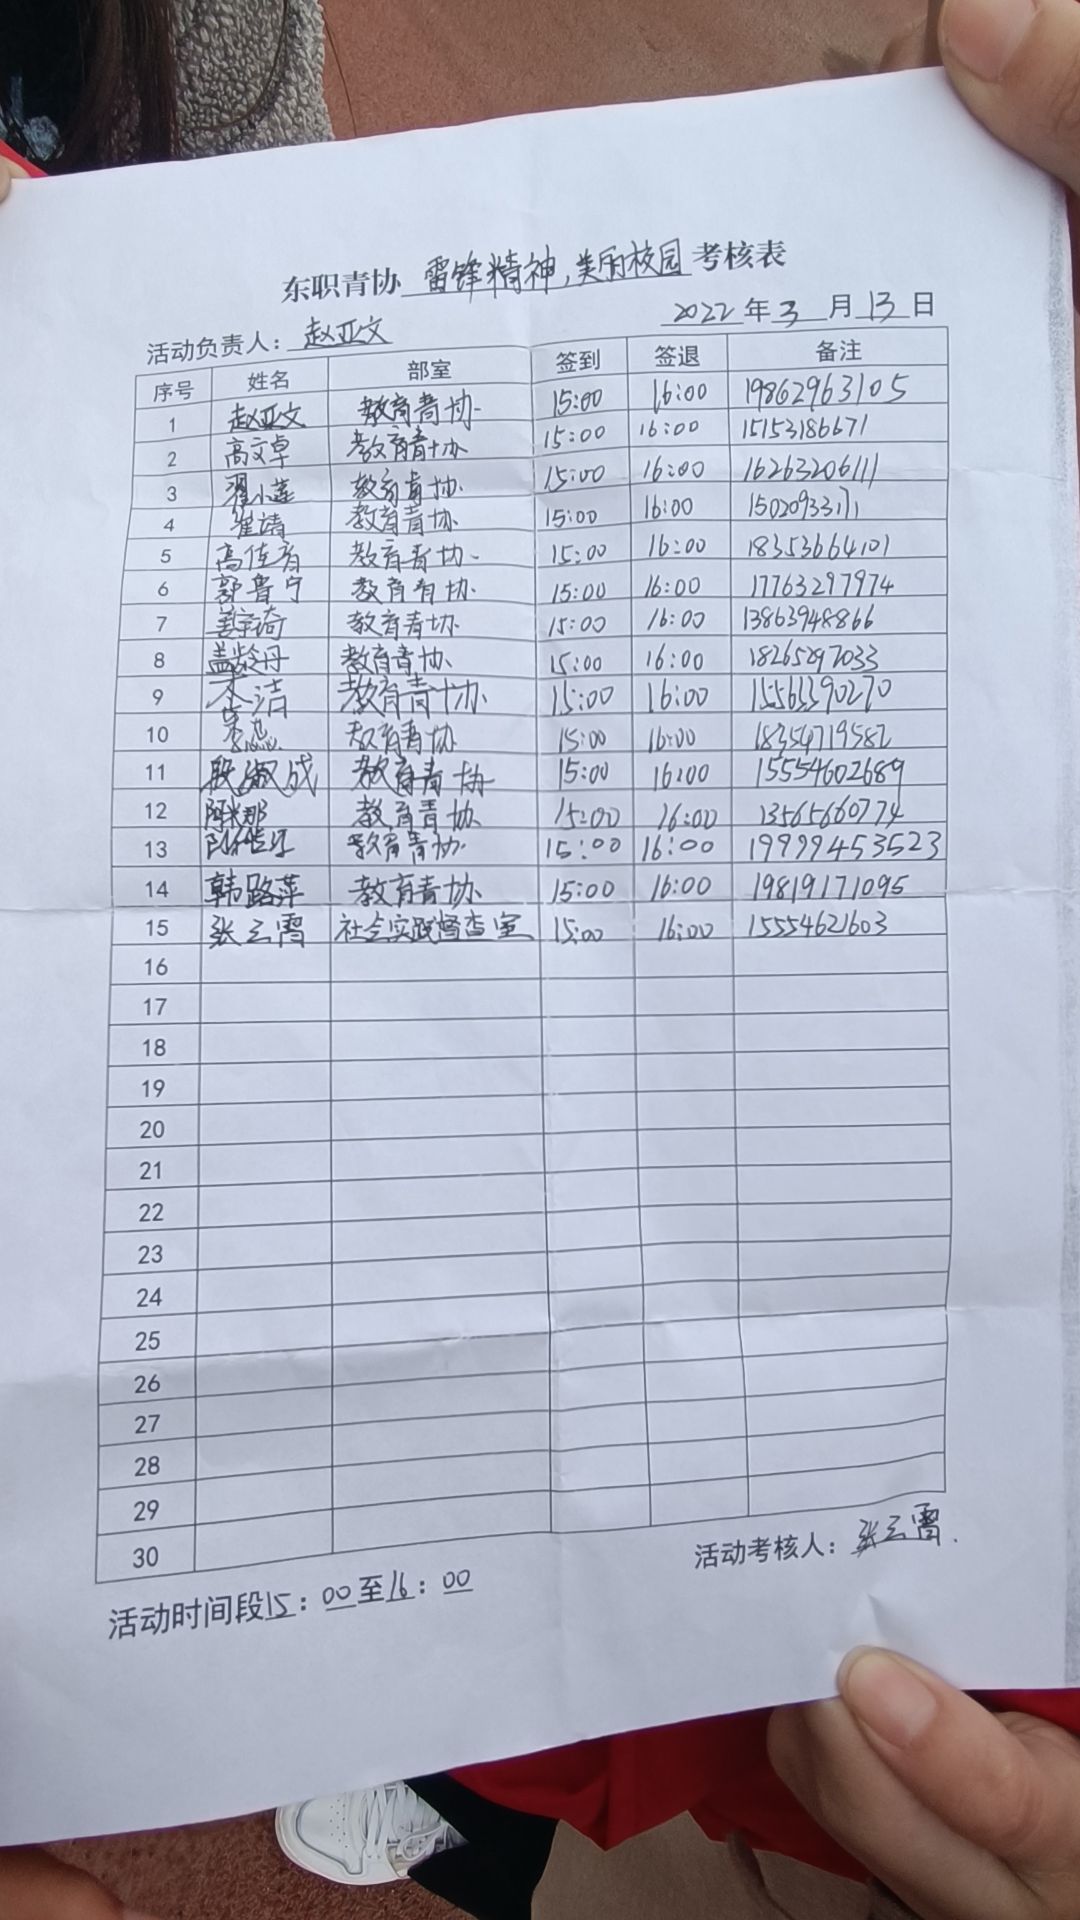 东职青协 雷锋精神,美丽校园 考核表
2022 年 3 月 13 日
活动负责人: 赵亚文
序号 姓名 部室 签到 签退 备注
1 赵亚文 教育青协 15:00 16:00 19862963105
2 高文卓 教育青协 15:00 16:00 15153186671
3 翟小莲 教育青协 15:00 16:00 16263206111
4 崔靖 教育青协 15:00 16:00
5 高佳育 教育青协 15:00 16:00 18353664101
6 郭鲁宁 教育青协 15:00 16:00 17763297974
7 姜宗琦 教育青协 15:00 16:00 13863948866
8 盖龄丹 教育青协 15:00 16:00 18265897033
9 李洁 教育青协 15:00 16:00 15563390270
10 教育青协 15:00 16:00 18354719582
11 殷淑成 教育青协 15:00 16:00 15554602689
12 教育青协 15:00 16:00 13565660774
13 教育青协 15:00 16:00 19999453523
14 韩路萍 教育青协 15:00 16:00 19819171095
15 张云霄 社会实践督查室 15:00 16:00 15554621603
16
17
18
19
20
21
22
23
24
25
26
27
28
29
30
活动考核人: 张云霄.
活动时间段15:00至16:00